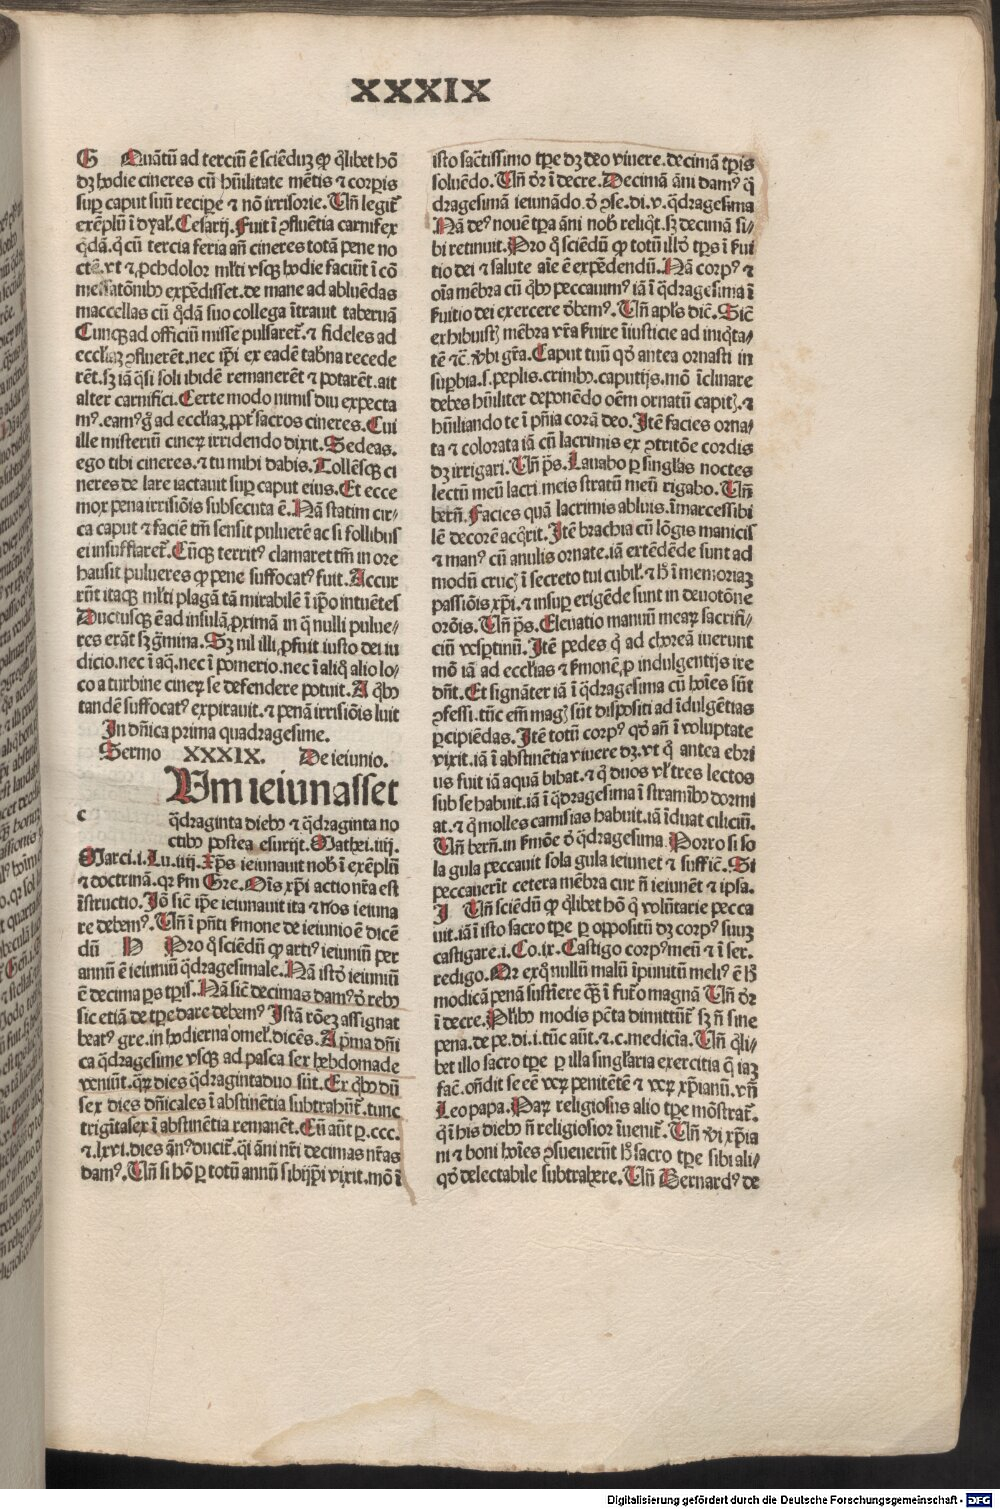 XXXIX
G Quãtũ ad terciũ ẽ sciẽduȝ ꝙ q̃libet hõ
dȝ hodie cineres cũ hũilitate mẽtis ⁊ corꝑis
suꝑ caput suũ recipe ⁊ nõ irrisorie. Uñ legit᷑
exẽplũ ĩ dyal. Cesarij. Fuit ĩ ꝯfluẽtia carnifex
q̃dã. q̃ cũ tercia feria añ cineres totã pene no
ctẽ. vt ⁊ ꝓchdolor ml̃ti vsqꝫ hodie faciũt ĩ cõ
messatõnibꝰ expẽdisset. de mane ad abluẽdas
maccellas cũ q̃dã suo collega ĩtrauit tabernã
Cunqꝫ ad officiũ misse pulsaret᷑. ⁊ fideles ad
eccl̃iaȝ ꝯfluerẽt. nec ip̃i ex eadẽ tab̃na recede
rẽt. sȝ iã q̃si soli ibidẽ remanerẽt ⁊ potarẽt. ait
alter carnifici. Certe modo nimis diu expecta
mꝰ. eamꝰ g̃ ad eccl̃iaȝ ꝓpt̃ sacros cineres. Cui
ille misteriũ cineꝝ irridendo dixit. Sedeas.
ego tibi cineres. ⁊ tu mihi dabis. Tollẽsqꝫ ci
neres de lare iactauit suꝑ caput eius. Et ecce
mox pena irrisiõis subsecuta ẽ. Nã statim cir⸗
ca caput ⁊ faciẽ tm̃ sensit puluerẽ ac si follibus
ei insufflaret᷑. Cũqꝫ territꝰ clamaret tm̃ in ore
hausit pulueres ꝙ pene suffocatꝰ fuit. Accur
rũt itaqꝫ ml̃ti plagã tã mirabilẽ ĩ ip̃o intuẽtes
Ductusqꝫ ẽ ad insulã ꝓximã in q̃ nulli pulue⸗
res erãt sȝ g̃mina. Sȝ nil illi ꝓfuit iusto dei iu
dicio. nec ĩ aq̃. nec ĩ pomerio. nec ĩ aliq̃ alio lo⸗
co a turbine cineꝝ se defendere potuit. A q̃bꝰ
tandẽ suffocatꝰ expirauit. ⁊ penã irrisiõis luit
In dñica prima quadragesime.
Sermo XXXIX. De ieiunio.
Vm ieiunasset
c q̃draginta diebꝰ ⁊ q̃draginta no
ctibꝰ postea esurijt. Mathei. iiij.
Marci. i. Lu. iiij. Xp̃s ieiunauit nob̃ ĩ exẽplũ
⁊ doctrinã. qꝛ fm̃ Gre. Oĩs xp̃i actio nr̃a est
ĩstructio. Iõ sic̃ ip̃e ieiunauit ita ⁊ nos ieiuna
re debemꝰ. Uñ ĩ pñti ẜmone de ieiunio ẽ dicẽ
dũ H Pro q̃ sciẽdũ ꝙ artiꝰ ieiuniũ per
annũ ẽ ieiuniũ q̃dragesimale. Nã istð ieiuniũ
ẽ decima ꝑs tꝑis. Nã sic̃ decimas damꝰ ð rebꝰ
sic etiã de tꝑe dare debemꝰ. Istã rõeȝ assignat
beatꝰ gre. in hodierna omel̃. dicẽs. A p̃ma dñi
ca q̃dragesime vsqꝫ ad pasca sex hebdomade
veniũt. q̃ꝝ dies q̃dragintaduo sũt. Ex q̃bꝰ dũ
sex dies dñicales ĩ abstinẽtia subtrahũt᷑. tunc
trigĩtasex ĩ abstinẽtia remanẽt. Cũ aũt ꝑ. ccc.
⁊. lxvi. dies ãnꝰ ducit᷑. q̃i ãni nr̃i decimas nr̃as
damꝰ. Uñ si hõ ꝑ totũ annũ sibijp̃i vixit. mõ ĩ
isto sãctissimo tꝑe dȝ deo viuere. decimã tꝑis
soluẽdo. Uñ ðr ĩ decre. Decimã ãni damꝰ q̃
dragesimã ieiunãdo. ð ꝯse. di. v. q̃dragesima
Nã deꝰ nouẽ tꝑa ãni nob̃ reliq̃t. sȝ decimã si⸗
bi retinuit. Pro q̃ sciẽdũ ꝙ totũ illð tꝑs ĩ ẜui
tio dei ⁊ salute aĩe ẽ expẽdendũ. Nã corpꝰ ⁊
oĩa mẽbra cũ q̃bꝰ peccauimꝰ iã ĩ q̃dragesima ĩ
ẜuitio dei exercere ðbemꝰ. Uñ apl̃s dic̃. Sic̃
exhibuistȝ mẽbra vr̃a ẜuire ĩiusticie ad iniq̃ta⸗
tẽ ⁊c̃. vbi gr̃a. Caput tuũ qð antea ornasti in
suꝑbia. s. peplis. crinibꝰ. caputijs. mõ ĩclinare
debes hũiliter deponẽdo oẽm ornatũ capitȝ. ⁊
hũiliando te ĩ pñia corã deo. Itẽ facies orna⸗
ta ⁊ colorata iã cũ lacrimis ex ꝯtritõe cordis
dȝ irrigari. Uñ p̃s. Lauabo ꝑ singl̃as noctes
lectũ meũ lacrimeis stratũ meũ rigabo. Uñ
berñ. Facies quã lacrimis abluis. ĩmarcessibi
lẽ decorẽ acq̃rit. Itẽ brachia cũ lõgis manicis
⁊ manꝰ cũ anulis ornate. iã extẽdẽde sunt ad
modũ crucȝ ĩ secreto tui cubil̃. ⁊ hͦ ĩ memoriaȝ
passiõis xp̃i. ⁊ insuꝑ erigẽde sunt in deuotõne
orõis. Uñ p̃s. Eleuatio manuũ meaꝝ sacrifi⸗
ciũ vesꝑtinũ. Itẽ pedes q̃ ad choreã iuerunt
mõ iã ad eccl̃ias ⁊ ẜmonẽ ꝓ indulgentijs ire
dñt. Et signãter iã ĩ q̃dragesima cũ hoĩes sũt
ꝯfessi. tũc em̃ magȝ sũt dispositi ad ĩdulgẽtias
ꝑcipiẽdas. Itẽ totũ corpꝰ qð añ ĩ voluptate
vixit. iã ĩ abstinẽtia viuere dȝ. vt q̃ antea ebri
us fuit iã aquã bibat. ⁊ q̃ duos vl̃ tres lectos
sub se habuit. iã ĩ q̃dragesima ĩ stramĩbꝰ dormi
at. ⁊ q̃ molles camisias habuit. iã ĩduat ciliciũ.
Uñ berñ. in ẜmõe ð q̃dragesima. Porro si so
la gula peccauit sola gula ieiunet ⁊ suffic̃. Si
peccauerĩt cetera mẽbra cur ñ ieiunẽt ⁊ ipsa.
I Uñ sciẽdũ ꝙ q̃libet hõ q̃ volũtarie pecca
uit. iã ĩ isto sacro tꝑe ꝑ oppositũ dȝ corpꝰ suuȝ
castigare. i. Co. ix. Castigo corpꝰ meũ ⁊ ĩ ser.
redigo. Qꝛ exq̃ nullũ malũ ĩpunitũ meliꝰ ẽ hͦ
modicã penã sustĩere q̃ȝ ĩ fut̃o magnã Uñ ðr
ĩ decre. Pl̃ibꝰ modis pc̃ta dimittũt᷑ sȝ ñ sine
pena. de pe. di. i. tũc aũt. ⁊. c. medicĩa. Uñ q̃li⸗
bet illo sacro tꝑe ꝑ illa singl̃aria exercitia q̃ iaȝ
fac̃. oñdit se eẽ veꝝ penitẽtẽ ⁊ veꝝ xp̃ianũ. vñ
Leo papa. Paꝝ religiosus alio tꝑe mõstrat᷑.
q̃ ĩ his diebꝰ ñ religiosior ĩuenit᷑. Uñ vi xp̃ia
ni ⁊ boni hoĩes ꝯsueuerũt hͦ sacro tꝑe sibi ali⸗
qð delectabile subtrahere. Uñ Bernardꝰ de
Digitalisierung gefördert durch die Deutsche Forschungsgemeinschaft - DFG